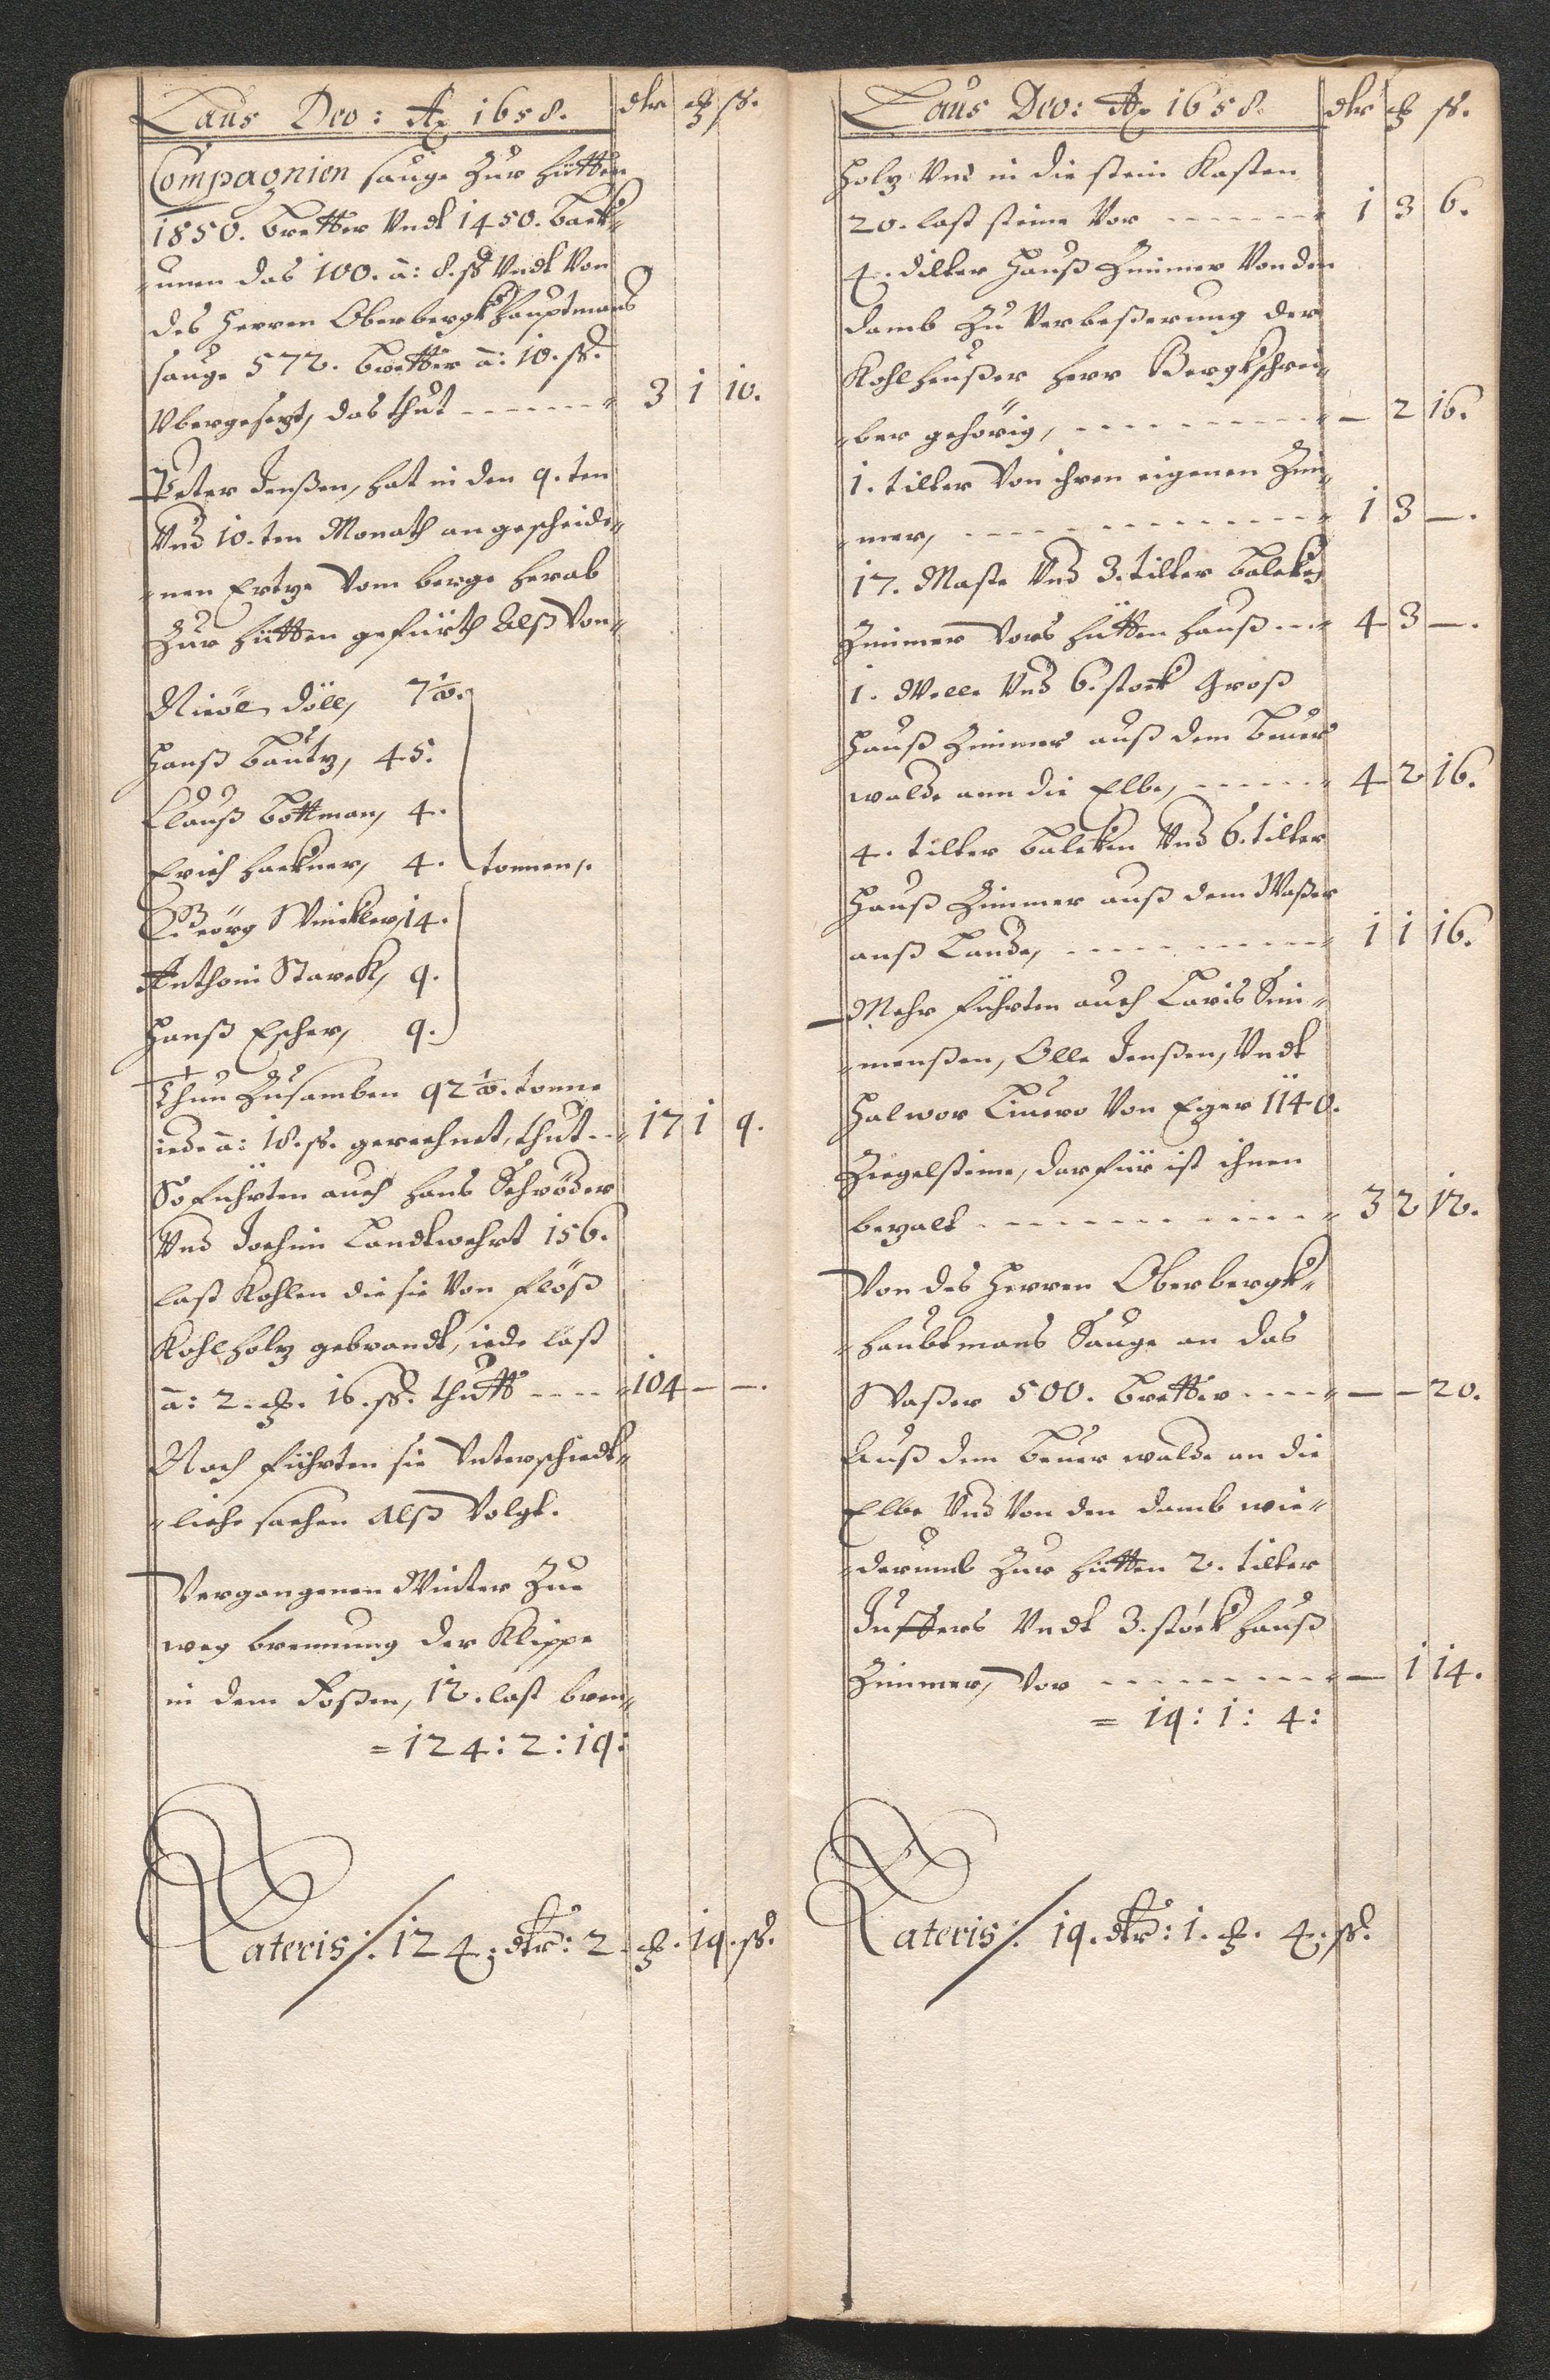 Laus Deo: Ao 1658. dlr ꝑ ß.
Compagnien sauge Zur hütten
1850. bretter Vndt 1450. back¬
¬unen das 100. â: 8. ß Vndt Von
des Herren Oberbergkhauptmans
sauge 572. bretter â: 10. ß.
Vbergesezt, das thut ------- 3 1 10.
Peter Jenßen, hat in den 9.ten
Vnd 10.ten Monath an gescheide¬
¬nen Ertze Vom berge herab
Zur hütten gefürth Alß Von¬
Nicol Döll, 7½.
Hanß bautz, 45.
Clauß bottman, 4.
Erich Hackner, 4. tonnen,.
Geörg Winckler, 14.
Anthoni Starck, 9.
Hanß Escher, 9.
Thun Zusamben 92½. tonne
iede â: 18. ß. gerechnet, thut -- 17 1 9.
So führten auch Hans Schröder
Vnd Jochim Landtwehrt 156.
last Kohlen die sie Von flöß
Kohlholtz gebrandt, iede last
â: 2. ꝑ. 16. ß. thutt ---- 104 — —.
Noch führten sie Vnterschiedt¬
¬liche sachen Alß Volgt.
Vergangenen Winter Zue
weg brennung der Klippe
in dem Foßen, 12. last bren¬
= 124: 2: 19:
Lateris/. 124. dlr: 2. ꝑ. 19. ß.
Laus Deo: Ao 1658. dlr ꝑ ß.
holtz Vnd in die stein Kasten
20. last steine Vor ------- 1 3 6.
4. dilter Hauß Zimmer Von den
damb Zu Verbeßerung der
Kohlheußer Herr Bergkschrei¬
¬ber gehörig, --------- — 2 16.
1. tilter Von ihren eigenen Zim¬
¬mer, ------------ 1 3 —.
17. Maste Vnd 3. tilter balcken
Zimmer Vors hütten hauß --- 4 3 —.
1. Welle Vnd 6. stock Groß
Hauß Zimmer auß dem beuer
walde ann die Elbe, ------ 4 2 16.
4. tilter balcken Vnd 6. tilter
Hauß Zimmer auß dem Waßer
anß Lande, ---------- 1 1 16.
Mehr führten auch Laris Sim¬
¬menßen, Olle Jenßen, Vndt
Halwor Liuero Von Eger 1140.
Ziegelsteine, darfür ist ihnen
bezalt ------------ 3 2 12.
Von des Herren Oberbergk¬
¬haubtmans Sauge an das
Waßer 500. bretter ---- — — 20.
Auß dem beuer walde an die
Elbe Vnd Von den damb wie¬
¬derumb Zur hütten 2. tilter
Juffers Vndt 3. stöck hauß
Zimmer, Vor -------- — 1 14.
= 19: 1: 4:
Lateris/. 19. dlr: 1. ꝑ. 4. ß.